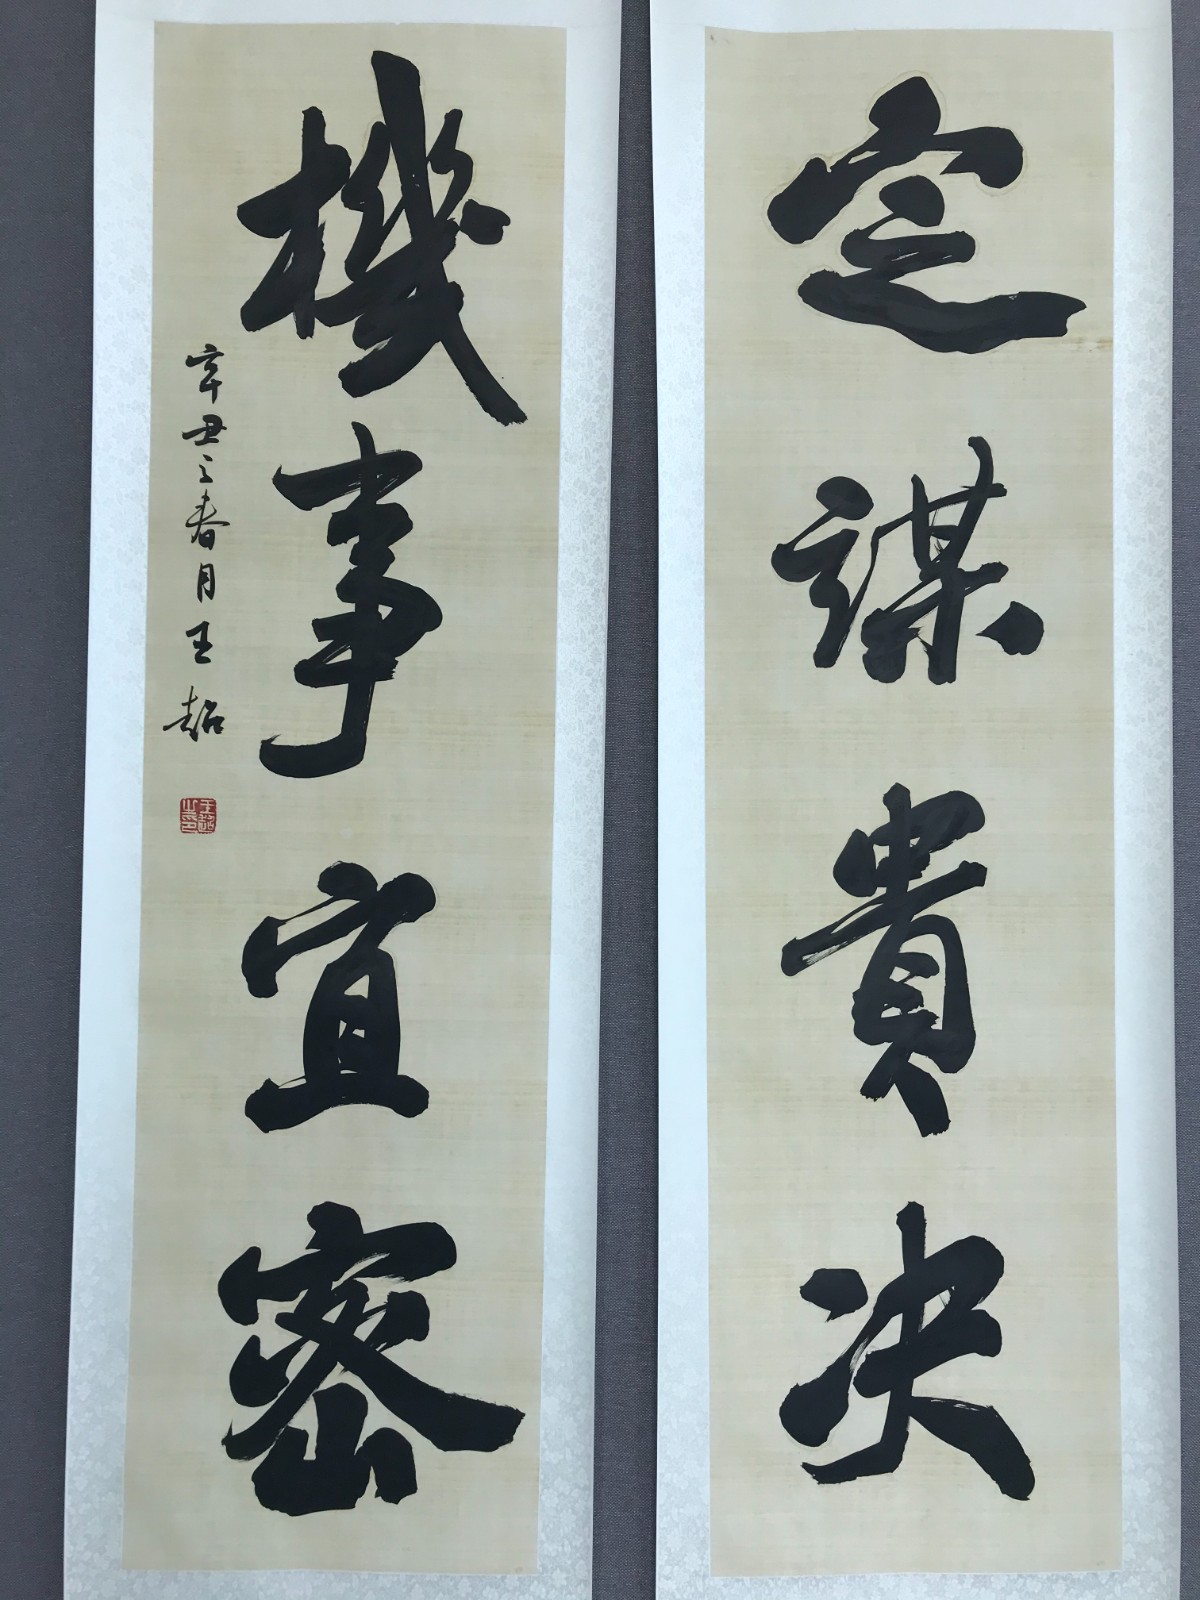 定謀貴決
機事宜密
辛丑之春月王超